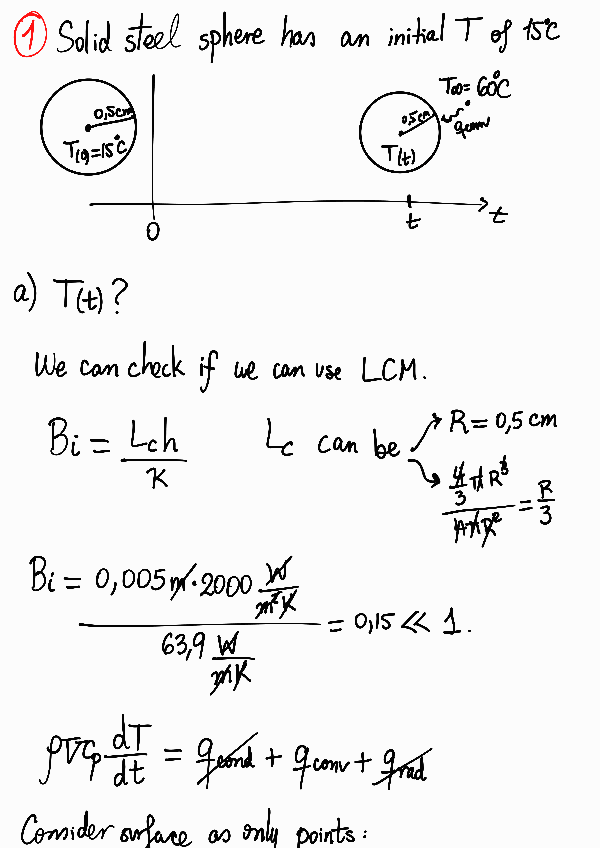 ① Solid steel sphere has an initial T of 15°C
0,5cm
T(0)=15°C
T∞=60°C
0,5cm
qconv
T(t)
0
t
t
a) T(t)?
We can check if we can use LCM.
Bi = Lch/K
Lc can be
R=0,5 cm
4/3 πR³ / 4πR² = R/3
Bi = 0,005m·2000 W/m²K / 63,9 W/mK = 0,15 ≪ 1.
ρVcp dT/dt = qcond + qconv + qrad
Consider surface as only points: